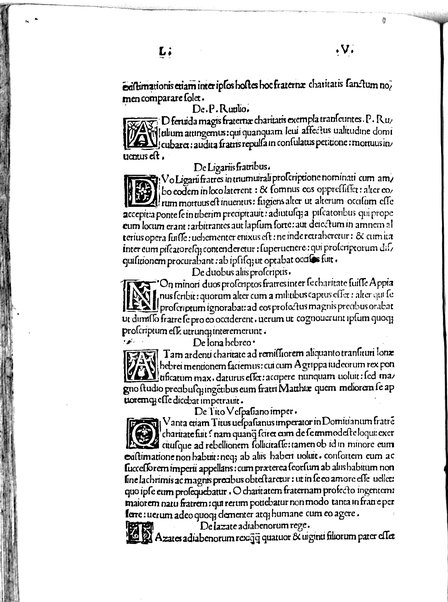 L. .V.
existimationis etiam inter ipsos hostes hoc fraternæ charitatis sanctum no/
men comparare solet.
De .P. Rutilio.
AD feruida magis fraternæ charitatis exempla transeuntes .P. Ru/
tilium attingemus: qui quanquam leui affectus ualitudine domi
cubaret: audita fratris repulsa in consulatus petitione: mortuus in/
uentus est.
De Ligariis fratribus.
DVo Ligarii fratres in triumuirali proscriptione nominati cum am/
bo eodem in loco laterent: & somnus eos oppressisset: alter eo/
rum mortuus est inuentus: fugiens alter ut alterum occisum esse
accepit a ponte se in tiberim precipitauit: adiutusq; a piscatoribus qui prope
eum locum erant: arbitrantes aut lapsum forte: aut deiectum in amnem al
terius opera fuisse: uehementer enixus est: ne inde retraheretur: & cum ita
inter eum piscatoresq; contenderetur: superuenere: qui proscriptorum dis/
quisitionem procurabant: ab ipsisq; ut optabat occisus fuit.
De duobus aliis proscriptis.
NOn minori duos proscriptos fratres inter se charitate fuisse Appia
nus scribit: quorum alter cum a militibus captus esset: alter qui se
proscriptum ignorabat: ad eos profectus magnis precibus orabat
ut dimisso fratre se pro eo occiderent. uerum ut cognouerunt ipsum quoq;
proscriptum esse: utrunq; interemerunt.
De Iona hebreo.
ATam ardenti charitate ad remissiorem aliquanto transituri Ionæ
hebrei mentionem faciemus: cui cum Agrippa iudeorum rex pon
tificatum max. daturus esset: accipere nunquam uoluit: sed ma/
gno studio precibusq; ingentibus eum fratri Matthiæ quem meliorem se ap
uoremq; esse dicebat impetrauit.
De Tito Vespasiano imper.
QVanta etiam Titus uespasianus imperator in Domitianum fratrẽ
charitate fuit? nam quanq̃ sciret eum de se immodeste loqui: exer
citusque ad rebellionem sollicitasse: tamen ob id in minore eum
existimatione non habuit: neq; ab aliis haberi uoluit. consortem eum ac
successorem imperii appellans: cum præterea seorsum ab aliis habitum non
sine lachrimis ac magnis precibus obtestaretur: ut in se eo amore esse uellet:
quo ipse eum prosequebatur. O charitatem fraternam profecto ingentem:
maiorem natu fratrem: qui rerum potiebatur non modo tanta in fratre per
ferre: uerum adeo quoq; clementer atq; humane cum eo agere.
De Iazate adiabenorum rege.
IAzates adiabenorum rex q̃q̃ quatuor & uiginti filiorum pater esset